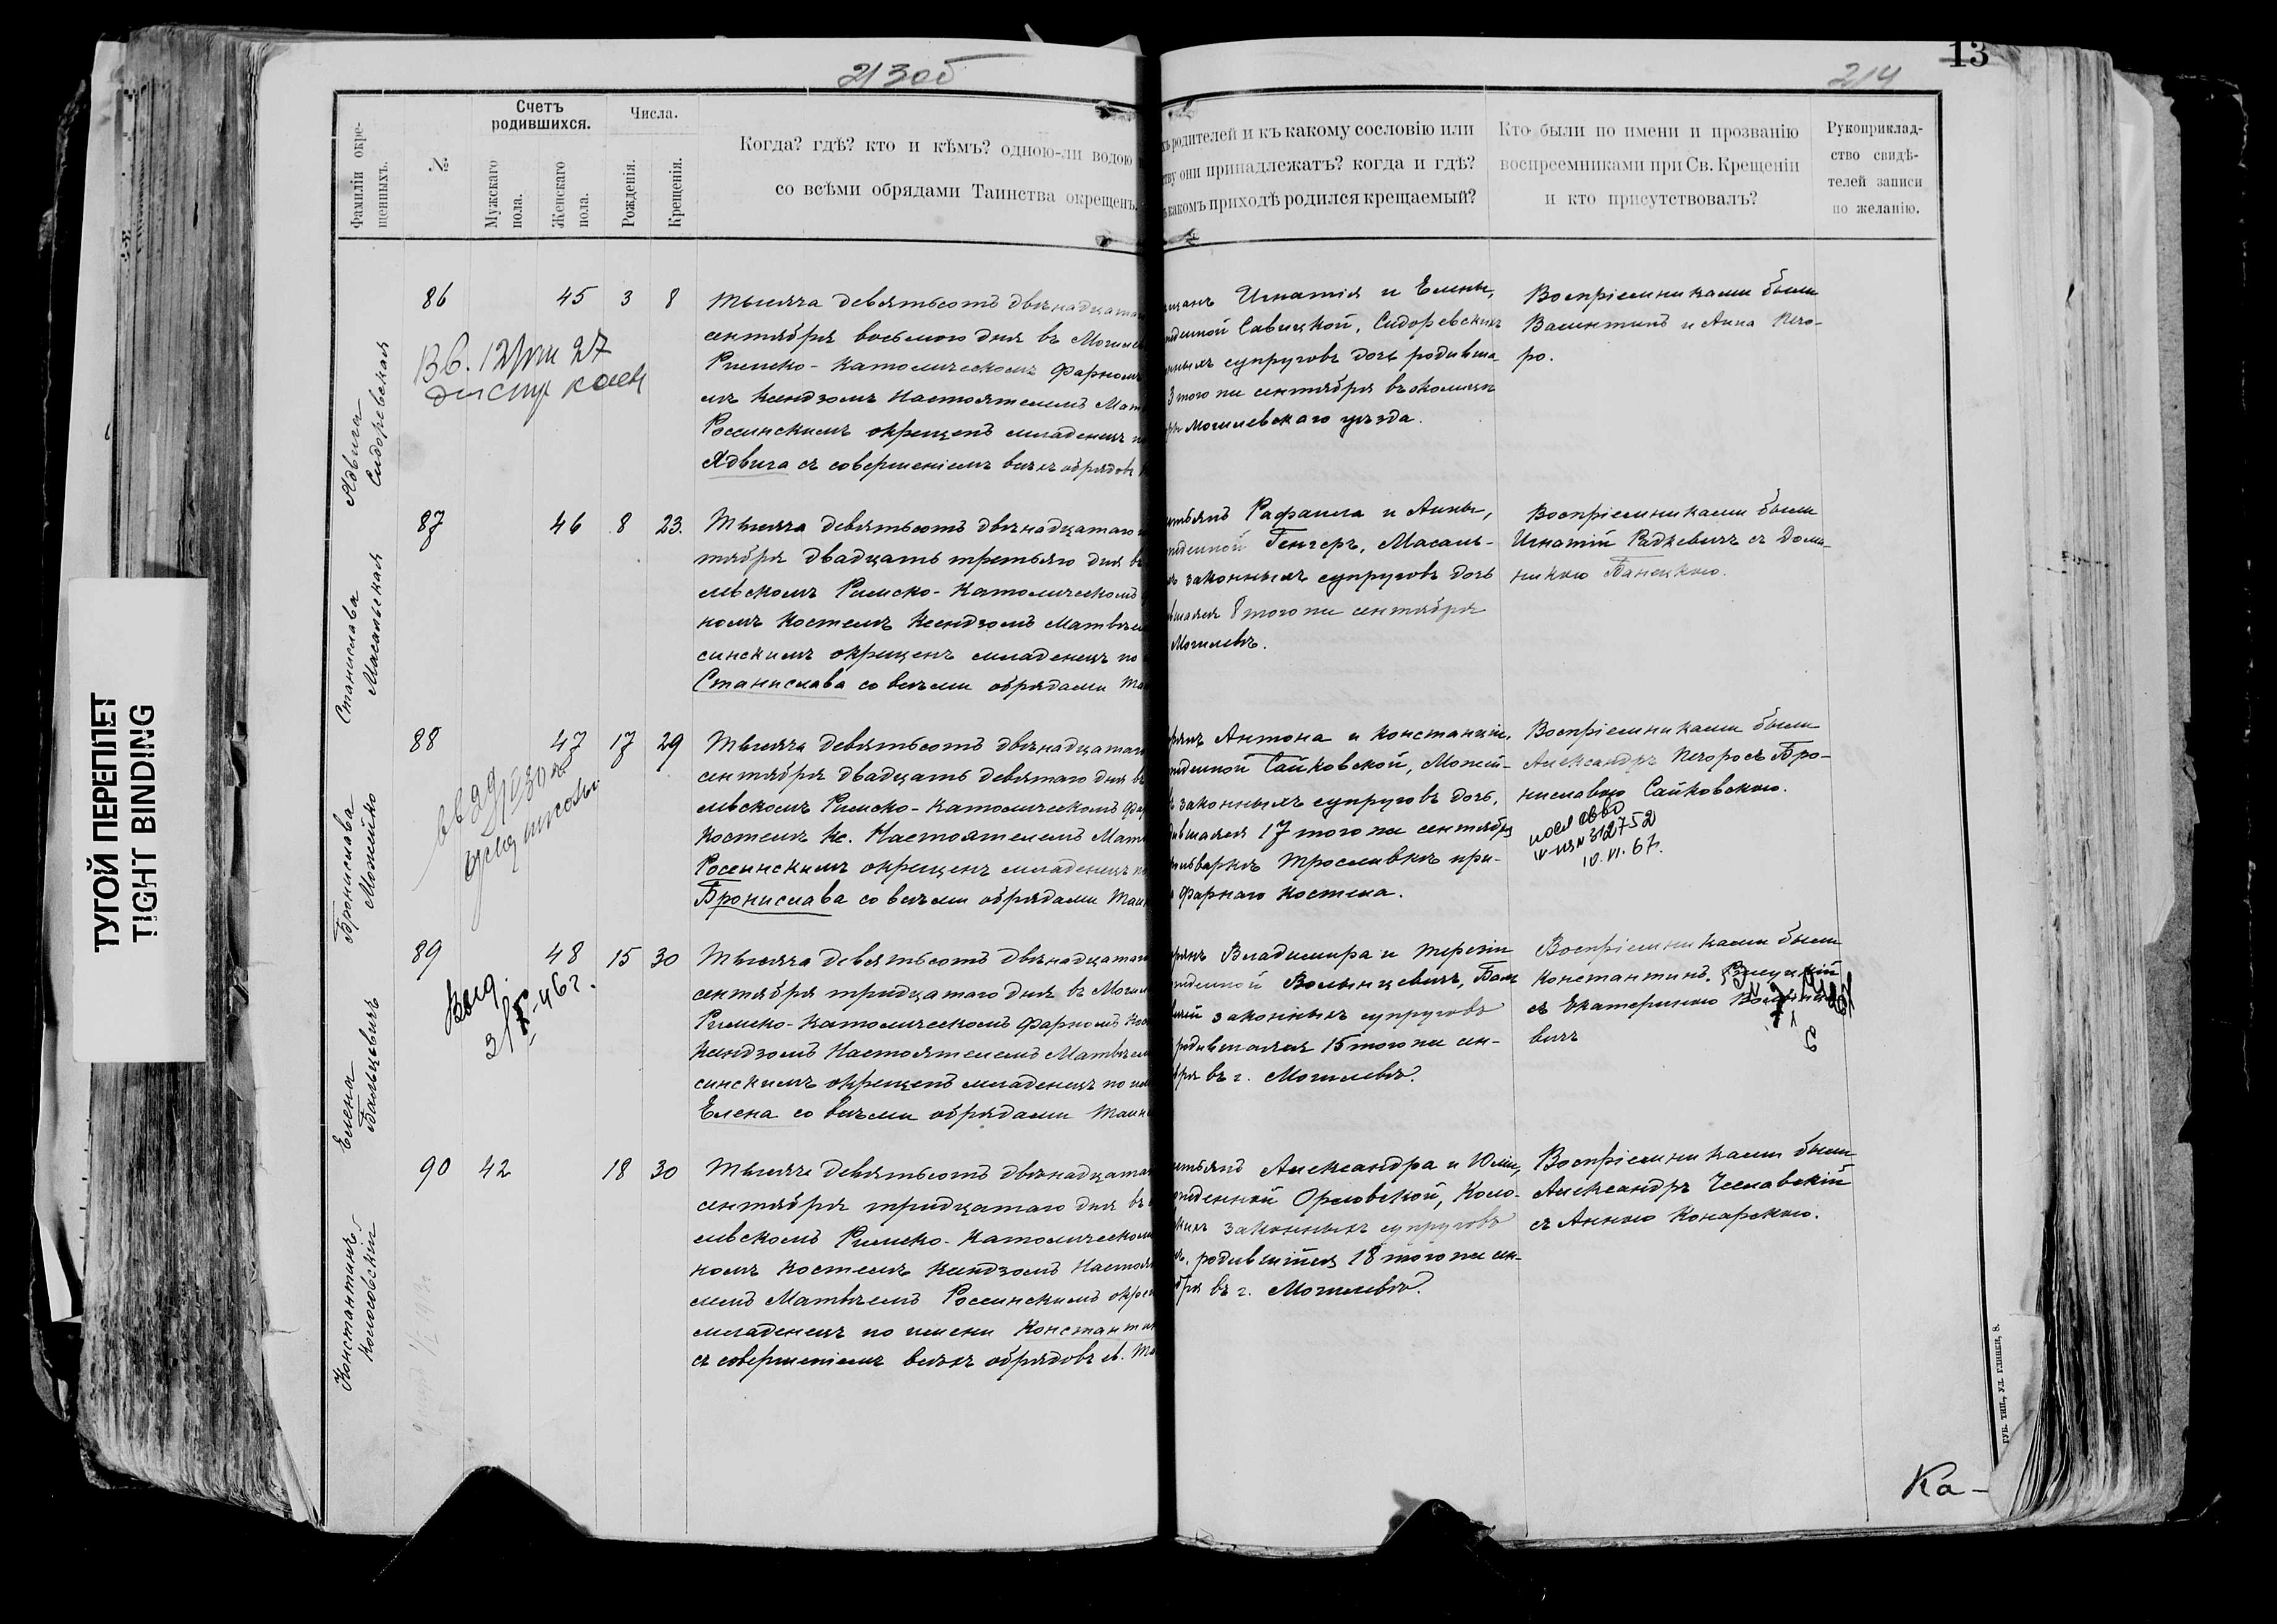 213об
214
13
ТУГОЙ ПЕРЕПЛЕТ
TIGHT BINDING
Фамиліи окре-
щенныхъ.
№
Счетъ
родившихся.
Мужскаго
пола.
Женскаго
пола.
Числа.
Рожденія.
Крещенія.
Когда? гдѣ? кто и кѣмъ? одною-ли водою
со всѣми обрядами Таинства окрещенъ.
родителей и къ какому сословію или
они принадлежатъ? когда и гдѣ?
какомъ приходѣ родился крещаемый?
Кто были по имени и прозванію
воспреемниками при Св. Крещеніи
и кто присутствовалъ?
Рукоприклад-
ство свидѣ-
телей записи
по желанію.
Ядвига
Сидоревская
86 45 3 8
Тысяча девятьсотъ двѣнадцатаго
сентября восьмого дня въ Могилев
Римско-Католическомъ Фарномъ
Ксендзомъ Настоятелемъ Мат
Россинскимъ окрещенъ младенецъ
Ядвига съ совершеніемъ всѣхъ обрядовъ
Игнатія и Елены,
Савицкой, Сидоревскихъ
супруговъ дочь родивша-
3 того же сентября въ околицѣ
Могилевскаго уѣзда.
Воспріемниками были
Валентинъ и Анна Печо-
ро.
Станислава
Масальская
87 46 8 23.
Тысяча девятьсотъ двѣнадцатаго
тября двадцать третьяго дня въ
левскомъ Римско-Католическомъ
номъ Костелѣ Ксендзомъ Матвѣем
синскимъ окрещенъ младенецъ по
Станислава со всѣми обрядами Таи
Рафаила и Анны,
Генгеръ, Масаль-
законныхъ супруговъ дочь
8 того же сентября
Могилевѣ.
Воспріемниками были
Игнатій Радкевичъ съ Доми-
никою Банецкою.
Бронислава
Можейко
88 47 17 29
Тысяча девятьсотъ двѣнадцатаго
сентября двадцать девятаго дня въ
левскомъ Римско-Католическомъ Фар
Костелѣ Кс. Настоятелемъ Матв
Россинскимъ окрещенъ младенецъ
Бронислава со всѣми обрядами Таин
Антона и Констанціи,
Сайковской, Можей-
законныхъ супруговъ дочь,
17 того же сентября
при-
Фарнаго Костела.
Воспріемниками были
Александръ Печоро съ Бро-
ниславою Сайковскою.
312752
10.VI.67г.
Елена
Бальцевичъ
89 48 15 30
Выд.
46 г.
Тысяча девятьсотъ двѣнадцатаго
сентября тридцатаго дня въ Могил
Римско-Католическомъ Фарномъ Кос
Ксендзомъ Настоятелемъ Матвѣем
синскимъ окрещенъ младенецъ по им
Елена со всѣми обрядами Таин
Владимира и Терезіи
Волынцевичъ, Баль
законныхъ супруговъ
родившаяся 15 того же сен-
въ г. Могилевѣ.
Воспріемниками были
Константинъ
съ Екатериною
вичъ
Константинъ
Колосовскій
90 42 18 30
Тысяча девятьсотъ двѣнадцатаго
сентября тридцатаго дня въ
левскомъ Римско-Католическомъ
номъ Костелѣ Ксендзомъ Настоя
лемъ Матвѣемъ Россинскимъ окре
младенецъ по имени Константин
съ совершеніемъ всѣхъ обрядовъ св. Та
Александра и Юліи,
Орловской, Коло-
законныхъ супруговъ
родившійся 18 того же сен-
въ г. Могилевѣ.
Воспріемниками были
Александръ Чеславскій
съ Анною Конарскою.
ГУБ. ТИП., УЛ. ГЛИНКИ, 8.
Ка-